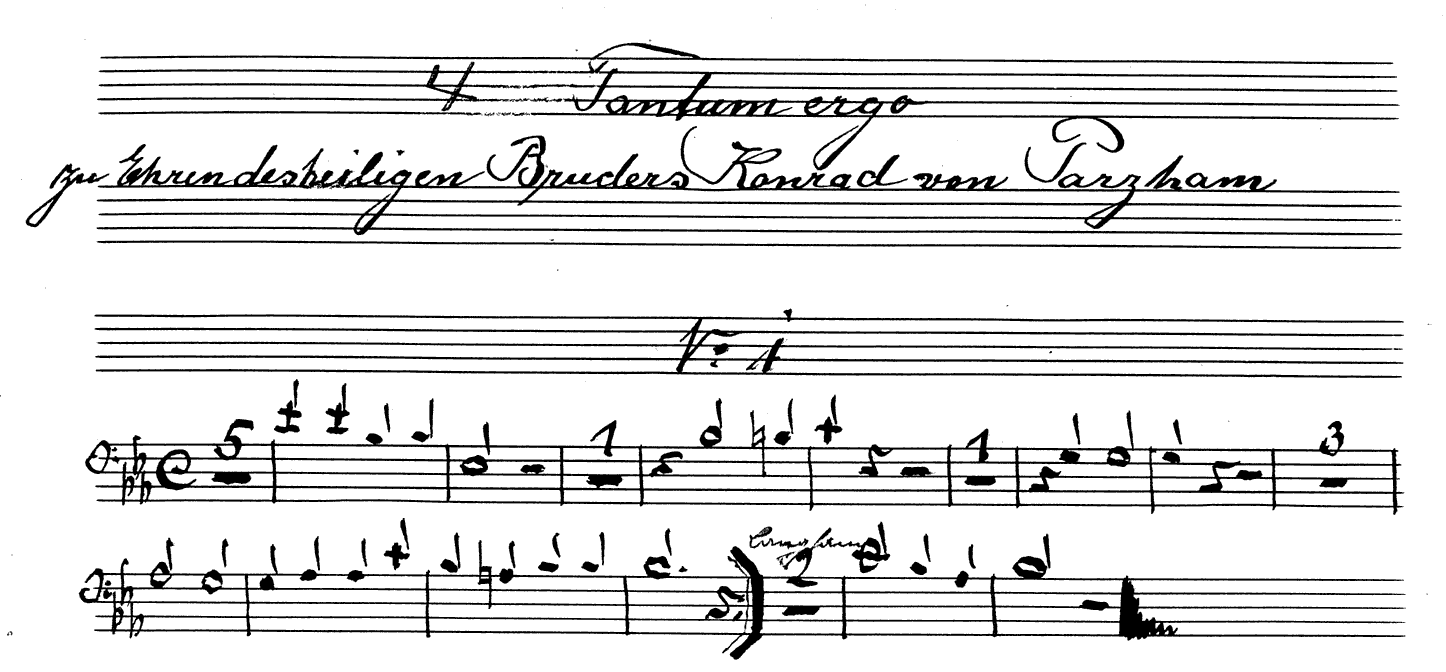 4 Tantum ergo
zu Ehren des heiligen Bruders Konrad von Parzham
No. 1
5 1 1 3
langsam
2